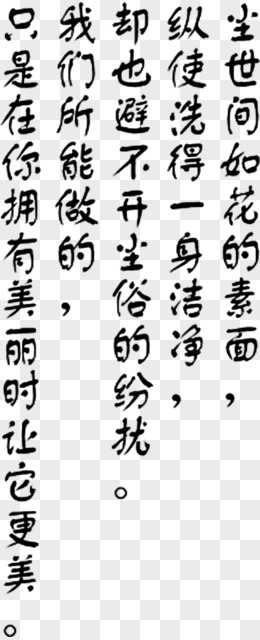 尘世间如花的素面，
纵使洗得一身洁净，
却也避不开尘俗的纷扰。
我们所能做的，
只是在你拥有美丽时让它更美。